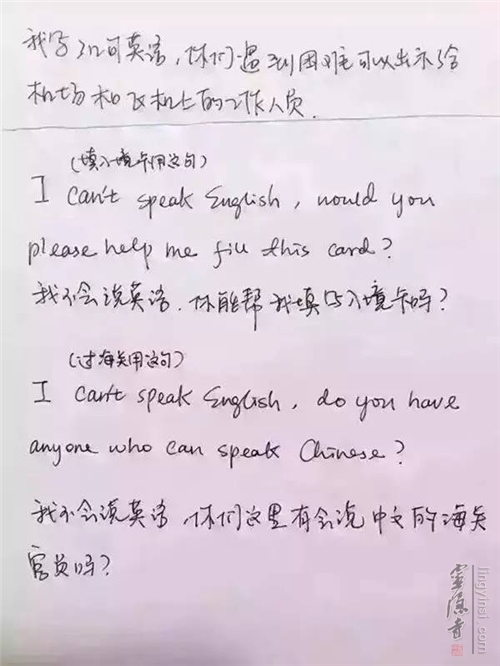 我写了几句英语，你们遇到困难可以出示给
机场和飞机上的工作人员.
(填入境卡用这句)
I can't speak English, would you
please help me fill this card?
我不会说英语，你能帮我填写入境卡吗？
(过海关用这句)
I can't speak English, do you have
anyone who can speak Chinese?
我不会说英语，你们这里有会说中文的海关
官员吗？
灵隐音
lingyinsi.com